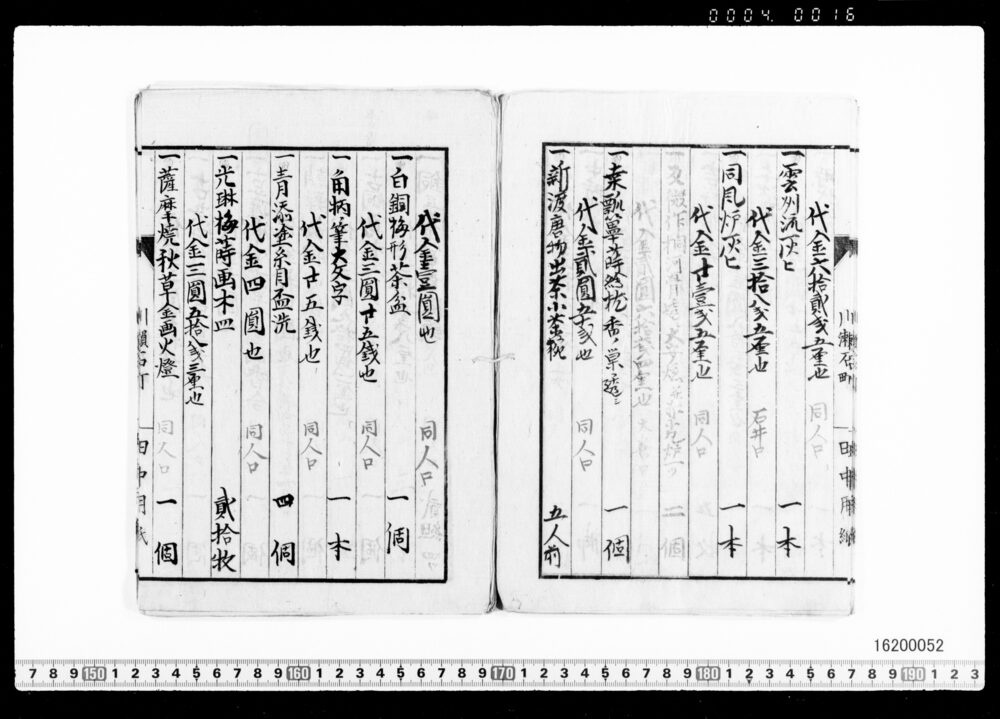 0004 0016
代金六拾貳銭五厘也 同人口
一雲州流灰匕 一本
代金三拾八銭五厘也 石井口
一同風炉灰匕 一本
代金廿壹銭五厘也 同人口
一桑瓢箪蒔絵 香 一個
代金貳圓五十銭也 同人口
一新渡唐物出茶小茶碗 五人前
代金壹圓也 同人口
一白銅梅形茶盆 一個
代金三圓廿五銭也 同人口
一角柄筆大文字 一本
代金廿五銭也 同人口
一青漆塗糸目盃洗 四個
代金四圓也 同人口
一光琳梅蒔画木皿 貳拾枚
代金三圓五拾八銭三厘也 同人口
一薩摩焼秋草金画火燈 一個
田中用紙
16200052
7 8 9 150 1 2 3 4 5 6 7 8 9 160 1 2 3 4 5 6 7 8 9 170 1 2 3 4 5 6 7 8 9 180 1 2 3 4 5 6 7 8 9 190 1 2 3